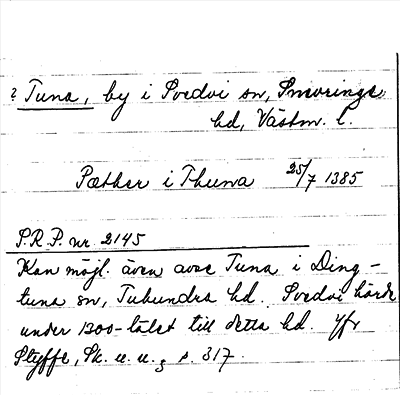 ? Tuna, by i Svedvi sn, Snevringe
hd, Västm. l.
Pæther i Thuna 25/7 1385
S.R.P. nr 2145
Kan möjl. även avse Tuna i Ding-
tuna sn, Tuhundra hd. Svedvi hörde
under 1300-talet till detta hd. Jfr
Styffe, Sk. u. u., s. 317.